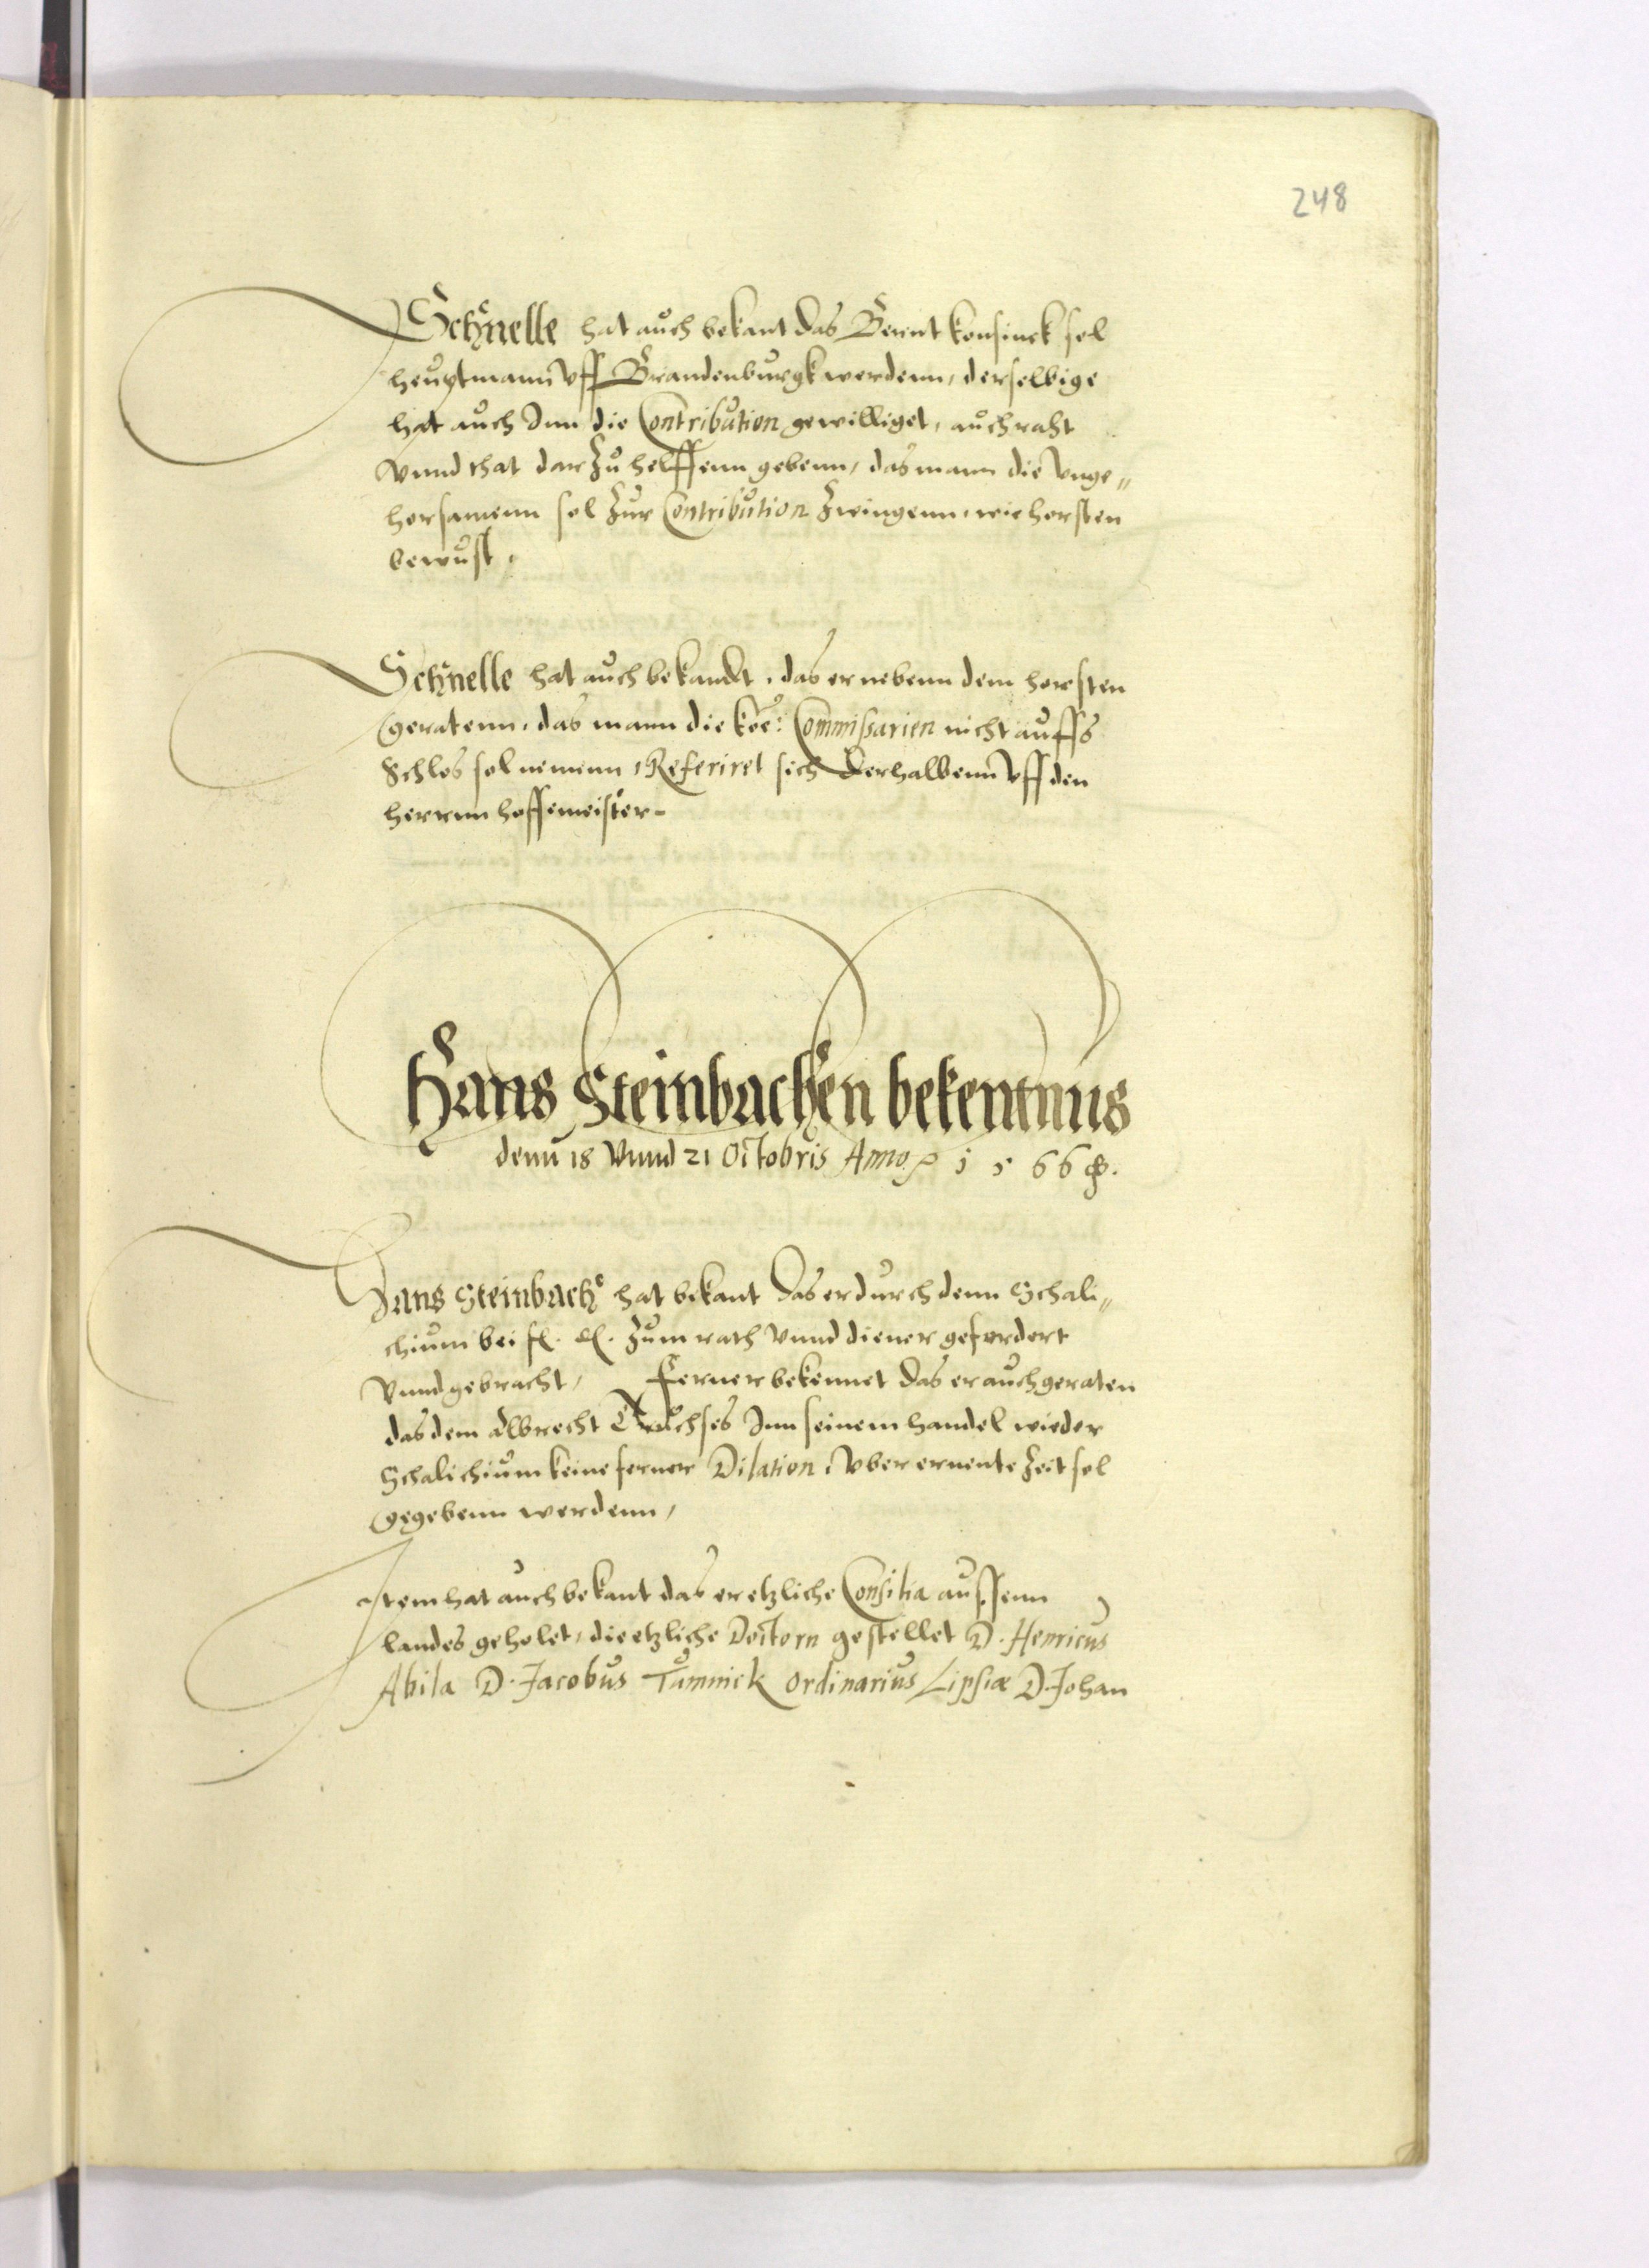 248
Schnelle hat auch bekant das Berent konsinck sol
heuptmann vff Brandenburgk werdenn, derselbige
hat auch Inn die Contribution gewilliget, auch raht
vnnd that dar zu helffenn gebenn, das mann die vnge„
horsamenn sol zur Contribution zwingenn, wie horsten
bewust,
Schnelle hat auch bekandt, das er nebenn dem horsten
geratenn, das mann die koe: Commissarien nicht auffs
Schlos sol nemenn, Referiret sich derhalbenn vff den
herrnn hoffemeister.
Hans Steinbachen bekentnus
denn 18 vnnd 21 Octobris Anno 1566.
Hans Steinbach hat bekant das er durch denn Schali„
chium bei zum rath vnnd diener gefordert
vnnd gebracht, Ferner bekennet das er auch geraten
das dem Albrecht Truchses Inn seinem handel wieder
Schalichium keine ferner Dilation, vber ernente Zeit sol
gegebenn werdenn,
Item hat auch bekant das er etzliche Consilia aussenn
landes geholet, die etzliche Doctorn gestellet D. Henricus
Abila D. Jacobus Tamnick Ordinarius Lipsiæ D. Johan